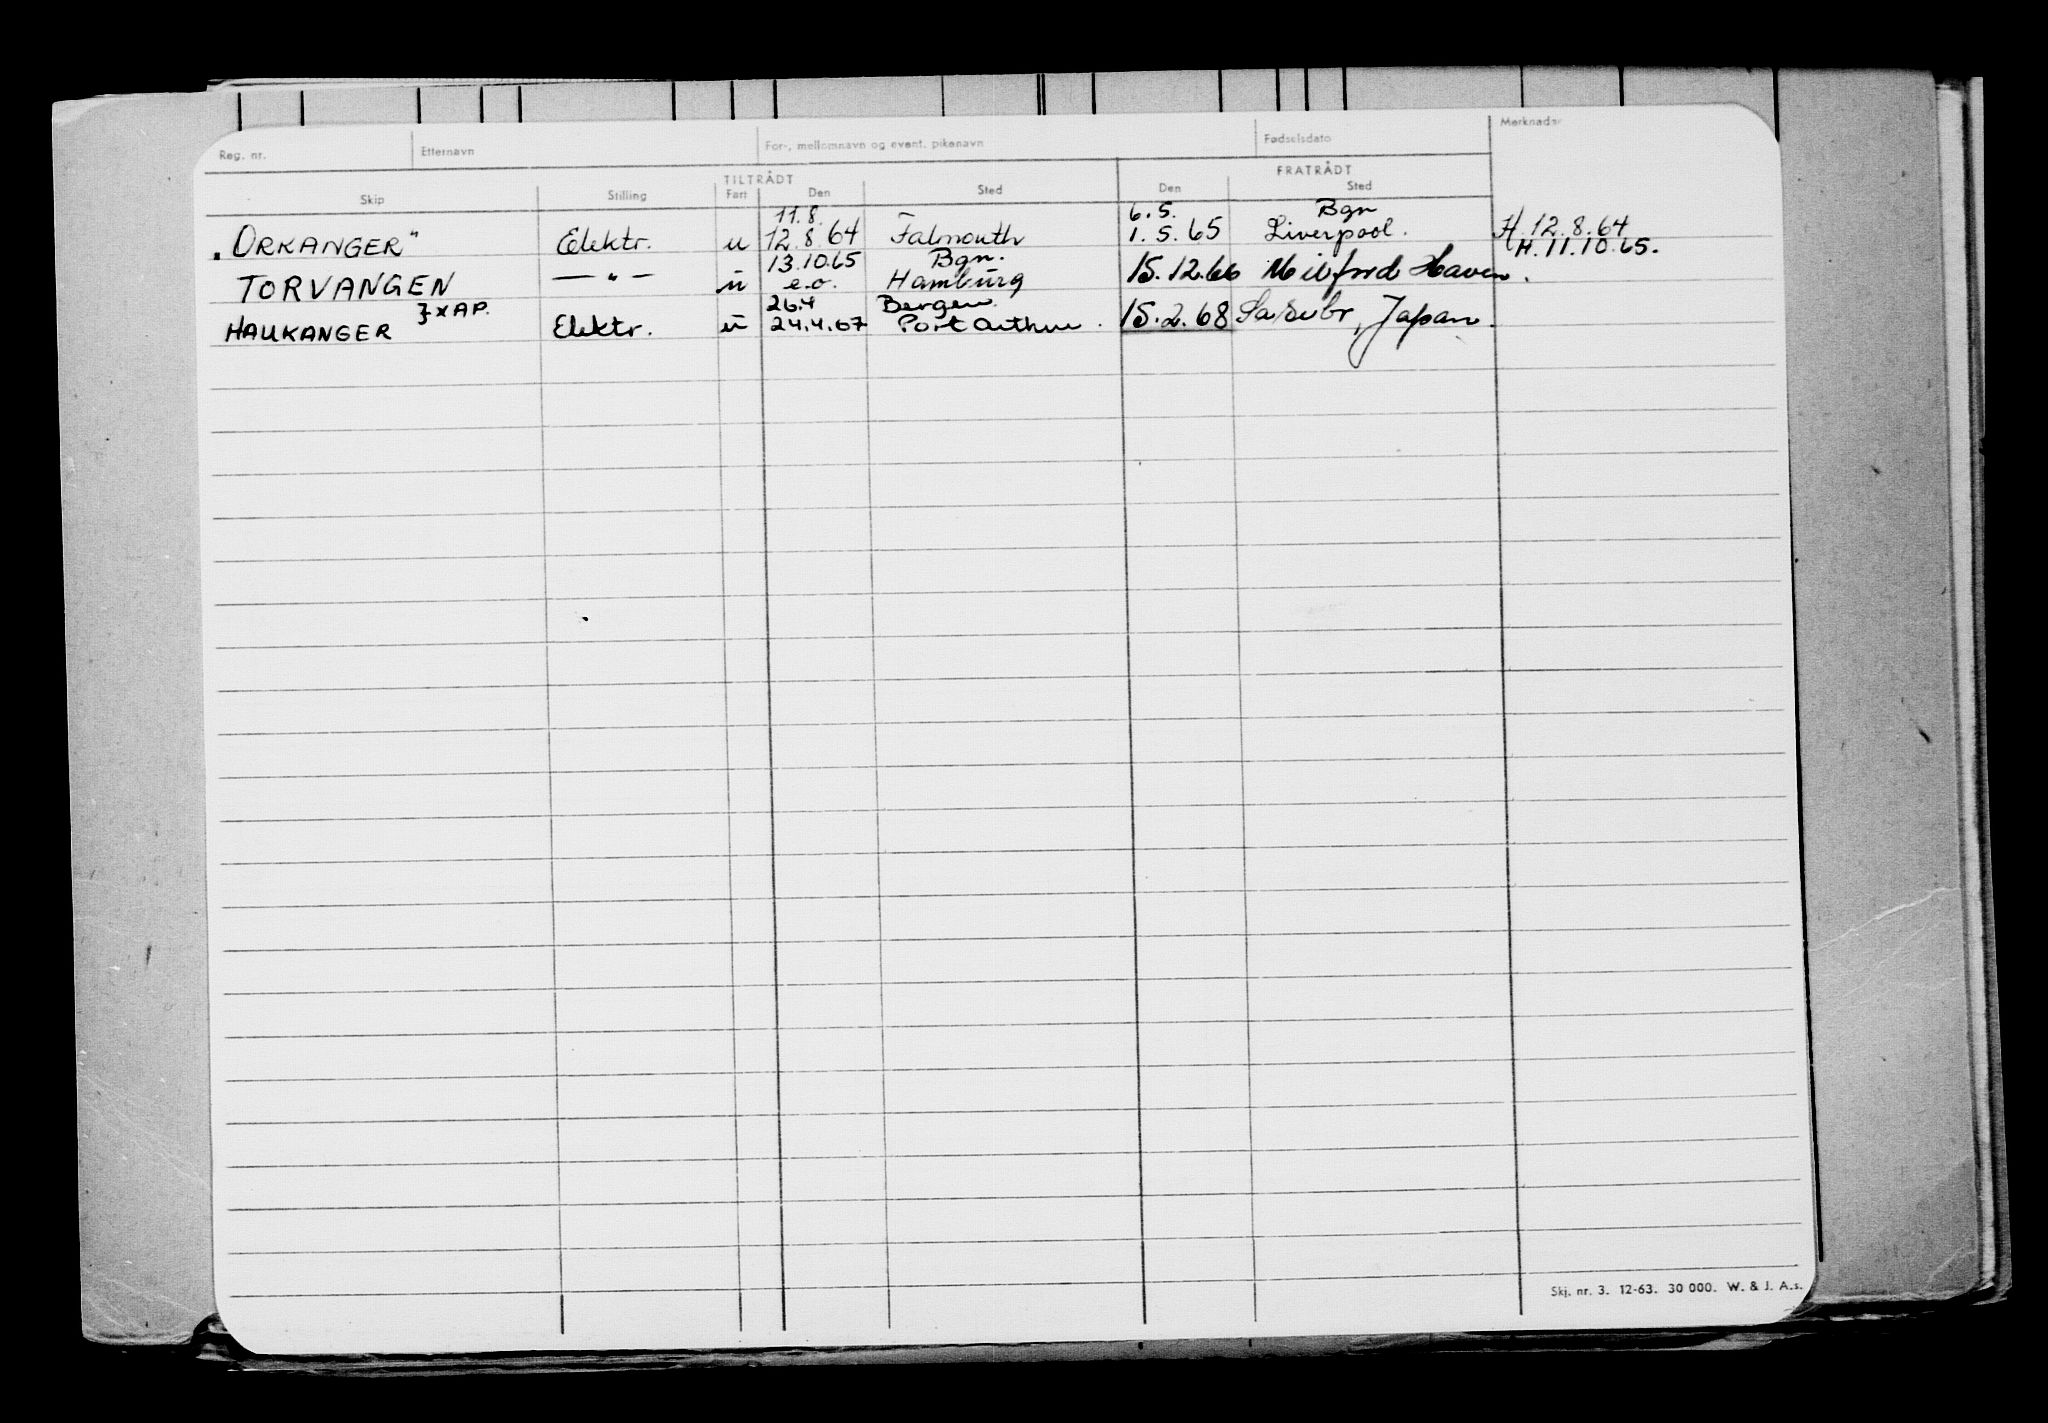 Reg. nr. Etternavn For-, mellomnavn og event. pikenavn Fødselsdato Merknader
TILTRÅDT FRATRÅDT
Skip Stilling Fart Den Sted Den Sted
11.8. 6.5. Bgn
"ORKANGER" Elektr. u 12.8.64 Falmouth 1.5.65 Liverpool. H. 12.8.64
13.10.65 Bgn. H. 11.10.65.
TORVANGEN — " — u e.o. Hamburg 15.12.66 Milford Haven.
}xAP. 26.4 Bergen.
HAUKANGER Elektr. u 24.4.67 Port Arthur. 15.2.68 Japan.
Skj. nr. 3. 12-63. 30 000. W. & J. A.s.